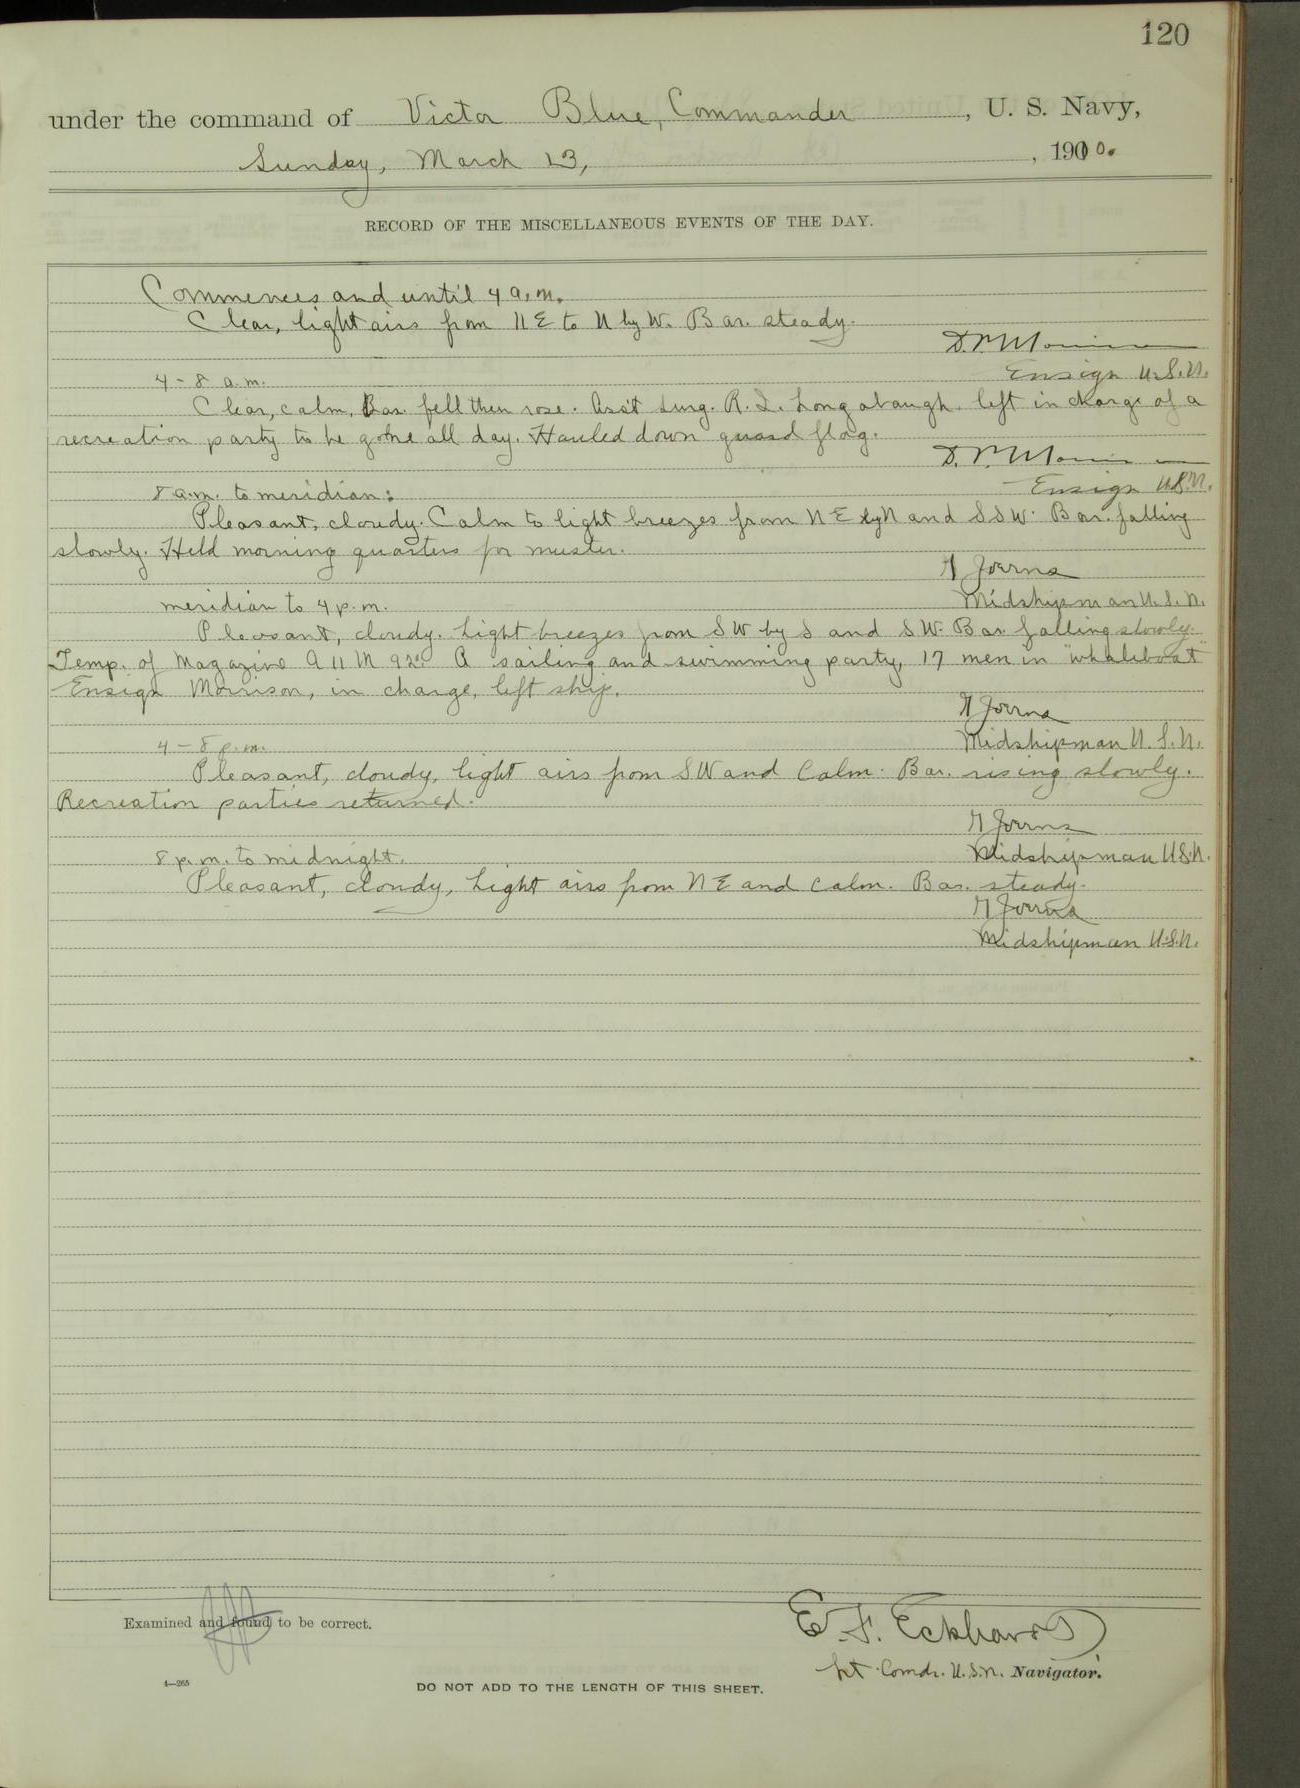 120
under the command of Victor Blue, Commander, U. S. Navy,
Sunday, March 13, , 1910.
RECORD OF THE MISCELLANEOUS EVENTS OF THE DAY.
Commences and until 4 a.m.
Clear, light airs from NE to N by W. Bar. steady.
Ensign U.S.N.
4 - 8 a.m.
Clear, calm, Bar. fell then rose. Ass't Surg. R. I. Longabaugh left in charge of a
recreation party to be gone all day. Hauled down guard flag.
Ensign U.S.N.
8 a.m. to meridian:
Pleasant, cloudy. Calm to light breezes from NE by N and SSW. Bar. falling
slowly. Held morning quarters for muster.
G Joerns
Midshipman U.S.N.
meridian to 4 p.m.
Pleasant, cloudy. Light breezes from SW by S and SW. Bar falling slowly.
Temp. of Magazine A 11 M 93° A sailing and swimming party, 17 men in "whaleboat"
Ensign Morrison, in charge, left ship.
G Joerns
Midshipman U.S.N.
4 - 8 p.m.
Pleasant, cloudy, light airs from SW and Calm. Bar. rising slowly.
Recreation parties returned.
G Joerns
Midshipman U.S.N.
8 p.m. to midnight.
Pleasant, cloudy, light airs from NE and calm. Bar. steady.
G Joerns
Midshipman U.S.N.
Examined and found to be correct.
E. F. Eckhardt
Lt. Comdr. U.S.N. Navigator.
4—265
DO NOT ADD TO THE LENGTH OF THIS SHEET.